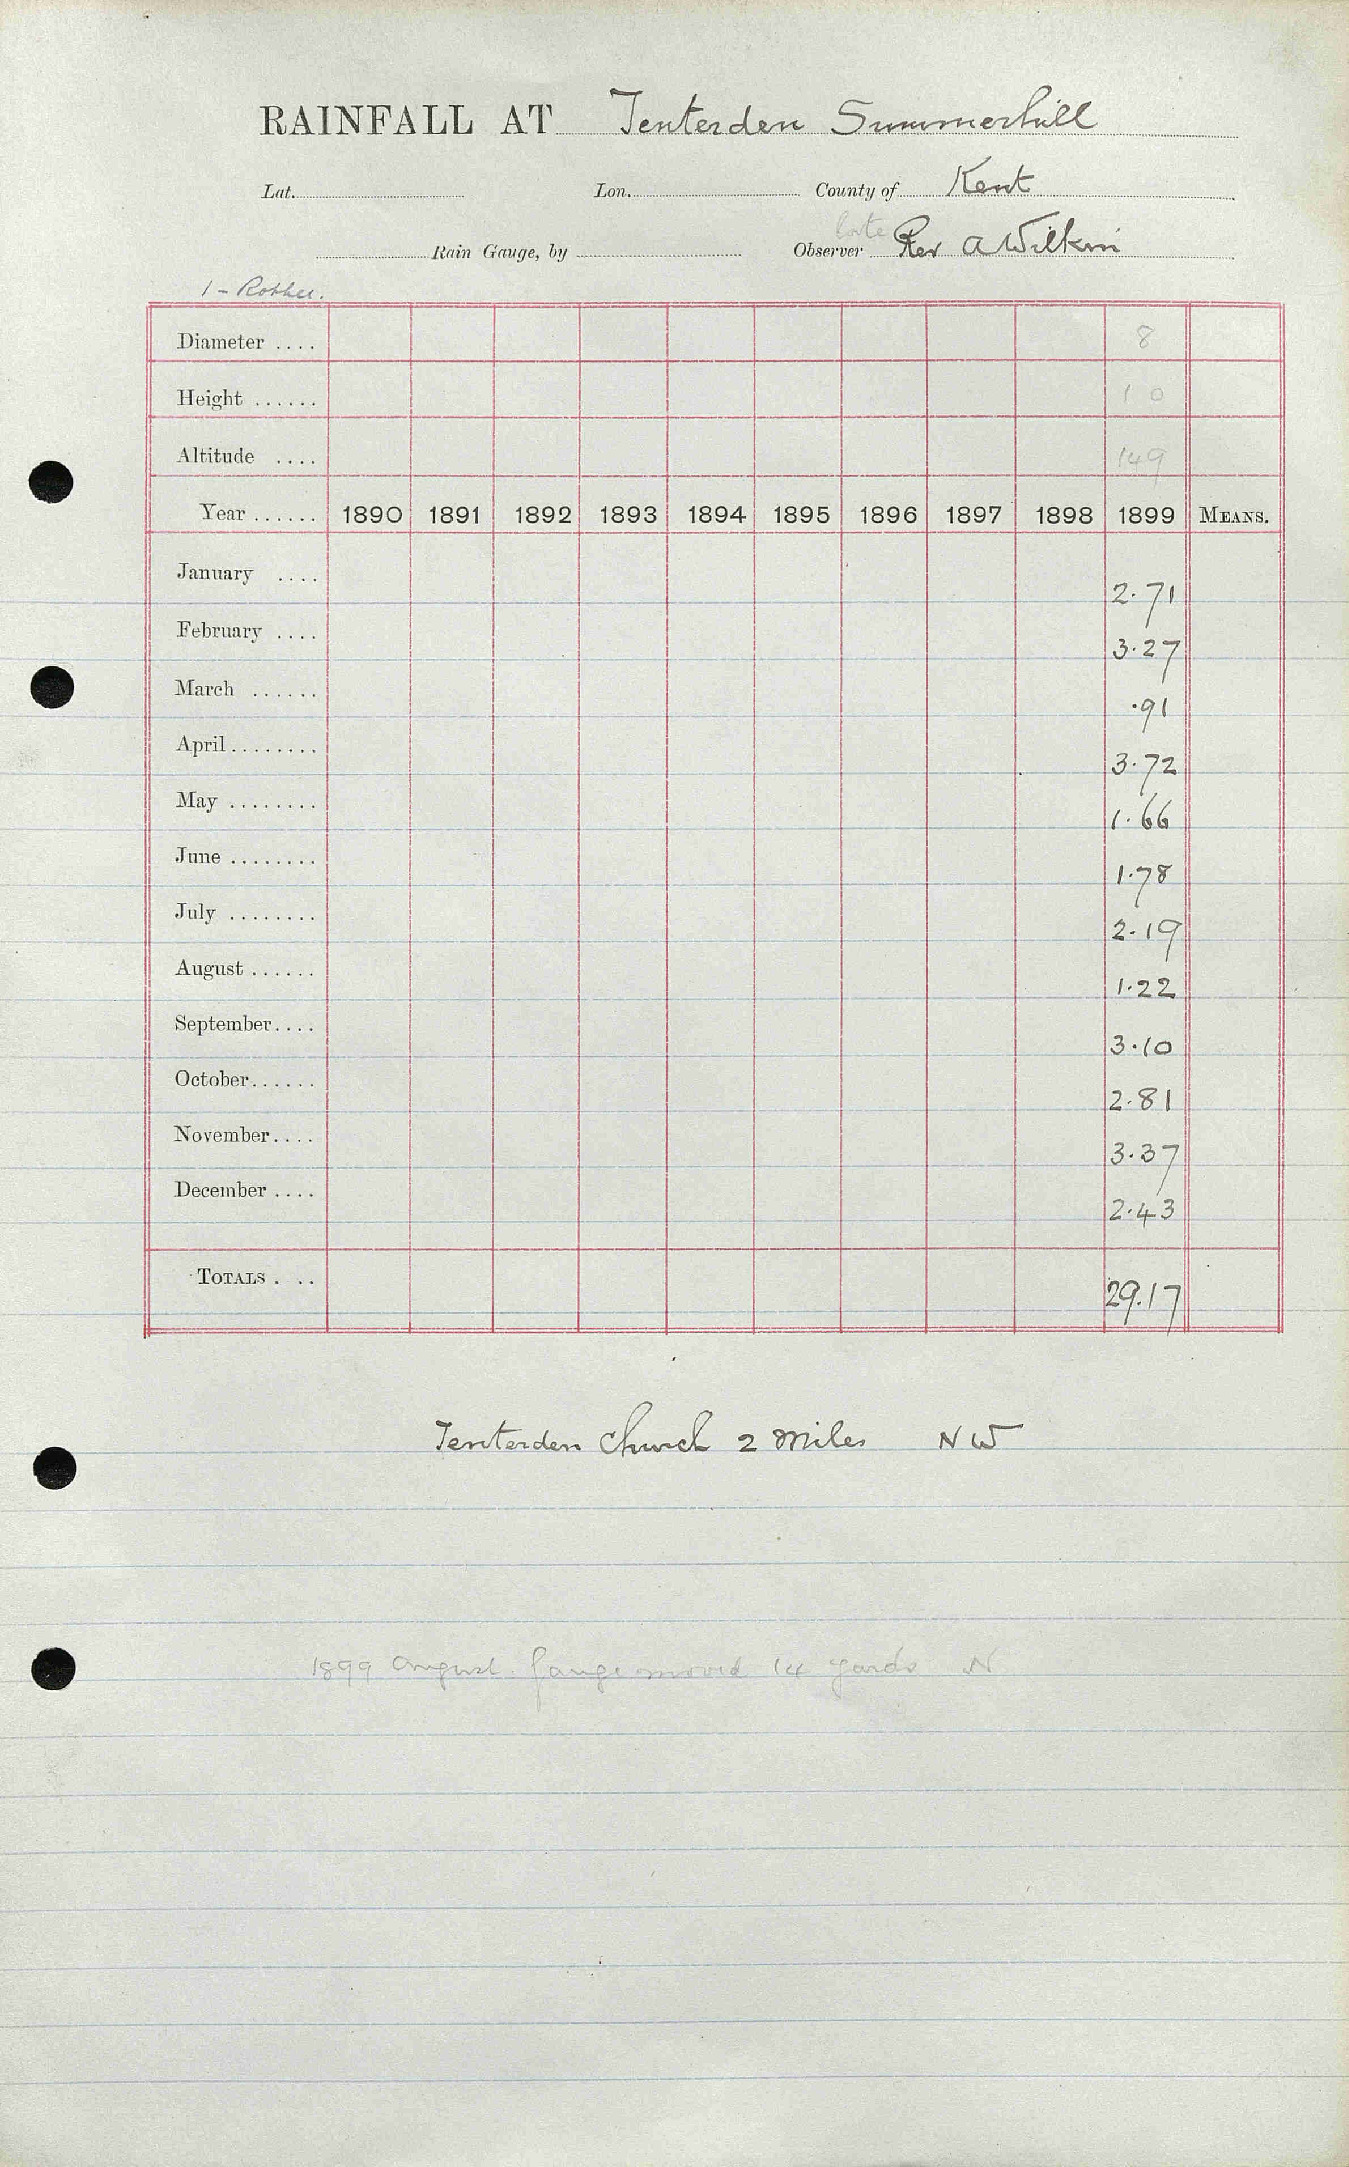 RAINFALL AT Tenterden Summerhill
Lat. Lon. County of Kent
Rain Gauge, by Observer late Rev A Wilkin
1 - Rother.
Diameter .... 8
Height ...... 1 0
Altitude .... 149
Year ...... 1890 1891 1892 1893 1894 1895 1896 1897 1898 1899 MEANS.
January .... 2.71
February .... 3.27
March ...... .91
April ........ 3.72
May ........ 1.66
June ........ 1.78
July ........ 2.19
August ...... 1.22
September.... 3.10
October...... 2.81
November.... 3.37
December .... 2.43
TOTALS . .. 29.17
Tenterden Church 2 miles NW
1899 August. Gauge moved 14 yards N